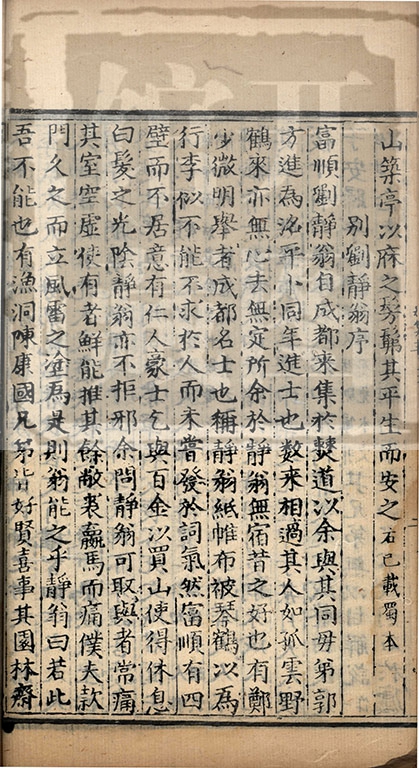 山築亭以庥之髣髴其平生而安之右已載蜀本
別劉靜翁序
富順劉靜翁自成都來集於僰道以余與其同毋弟郭
方進爲洺平小同年進士也數來相過其人如孤雲野
鶴來亦無心去無定所余於靜翁無宿昔之好也有鄭
少微明舉者成都名士也稱靜翁紙帷布被琴鶴以爲
行李似不能不求於人而未嘗發於詞氣然富順有四
壁而不居意有仁人豪士乞與百金以買山使得休息
白髮之光陰靜翁亦不拒邪余問靜翁可取與者常痛
其室空虛使有者鮮能推其餘敝裘羸馬而痛僕夫款
門久之而立風雷之塗爲是則翁能之乎靜翁曰若此
吾不能也有漁洞陳康國兄弟皆好賢喜事其園林齋